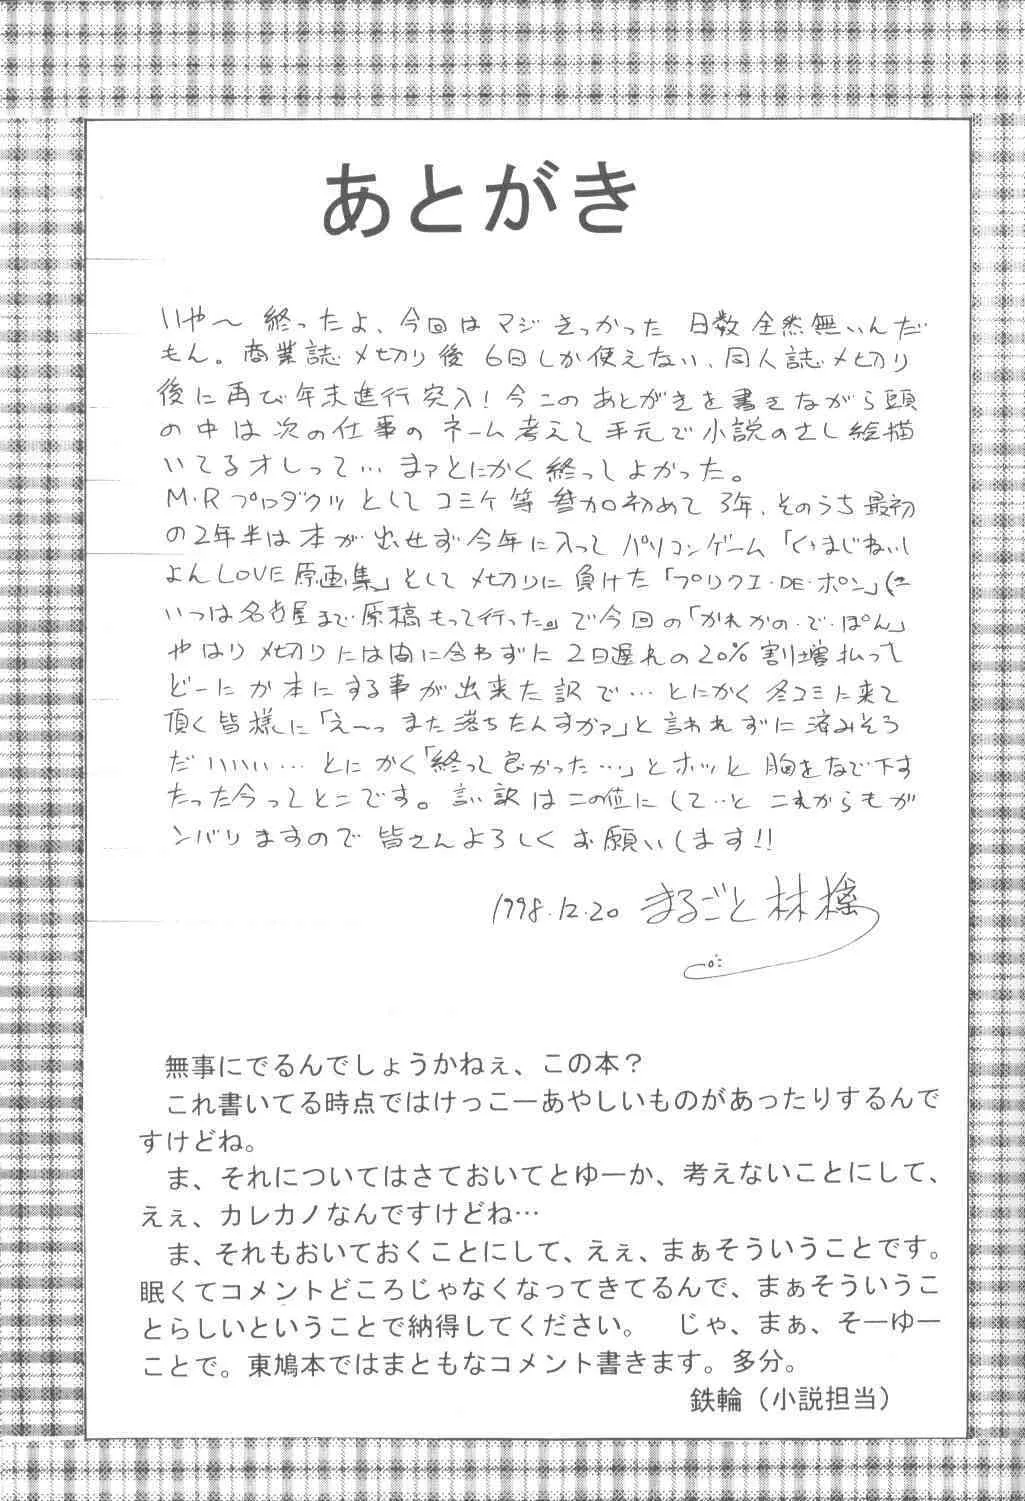 あとがき
いや～ 終ったよ、今回は マジ きつかった 日数 全然無いんだ
もん。商業誌〆切り後 6日しか使えない、同人誌〆切り
後に再び年末進行突入！今このあとがきを書きながら頭
の中は次の仕事のネーム考えて手元で小説のさし絵描
いてるオレって… まァとにかく終ってよかった。
M・Rプロダクツとしてコミケ等参加初めて3年、そのうち最初
の2年半は本が出せず今年に入ってパソコンゲーム「くりまじねいし
よんLOVE原画集」として〆切りに負けた「プリクエ・DE・ポン」(こ
いつは名古屋まで原稿もって行った。)で今回の「かれかの・で・ぽん」
やはり〆切りには間に合わずに2日遅れの20%割増払って
どーにか本にする事が出来た訳で… とにかく冬コミに来て
頂く皆様に「え～っまた落ちたんすかァ」と言われずに済みそう
だいいいい… とにかく「終って良かった…」とホッと胸をなで下す
たった今ってとこです。言い訳はこの位にして…と これからもガ
ンバリますので皆さんよろしくお願いします!!
1998.12.20 まるごと林檎
無事にでるんでしょうかねぇ、この本？
これ書いてる時点ではけっこーあやしいものがあったりするんで
すけどね。
ま、それについてはさておいてとゆーか、考えないことにして、
えぇ、カレカノなんですけどね…
ま、それもおいておくことにして、えぇ、まぁそういうことです。
眠くてコメントどころじゃなくなってきてるんで、まぁそういうこ
とらしいということで納得してください。　じゃ、まぁ、そーゆー
ことで。東鳩本ではまともなコメント書きます。多分。
鉄輪（小説担当）